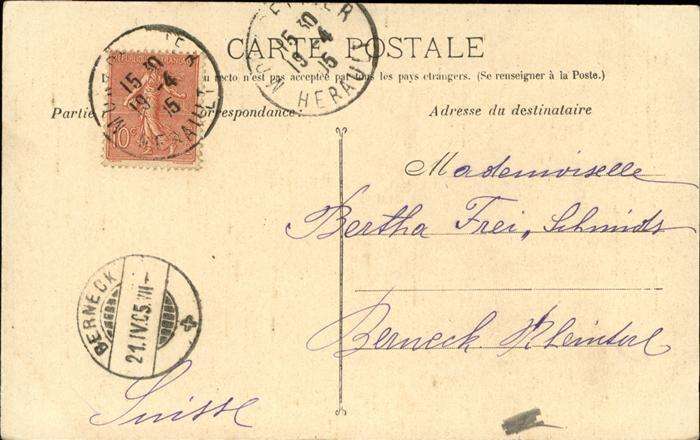 CARTE POSTALE
recto n'est pas accepté par tous les pays étrangers. (Se renseigner à la Poste.)
Partie correspondance:
Adresse du destinataire
10
15 30
19 -4
15
HERAULT
15 30
19 -4
15
HERAULT
Mademoiselle
Bertha Frei, Schmids
Berneck
BERNECK
21.IV.05.VII
Suisse